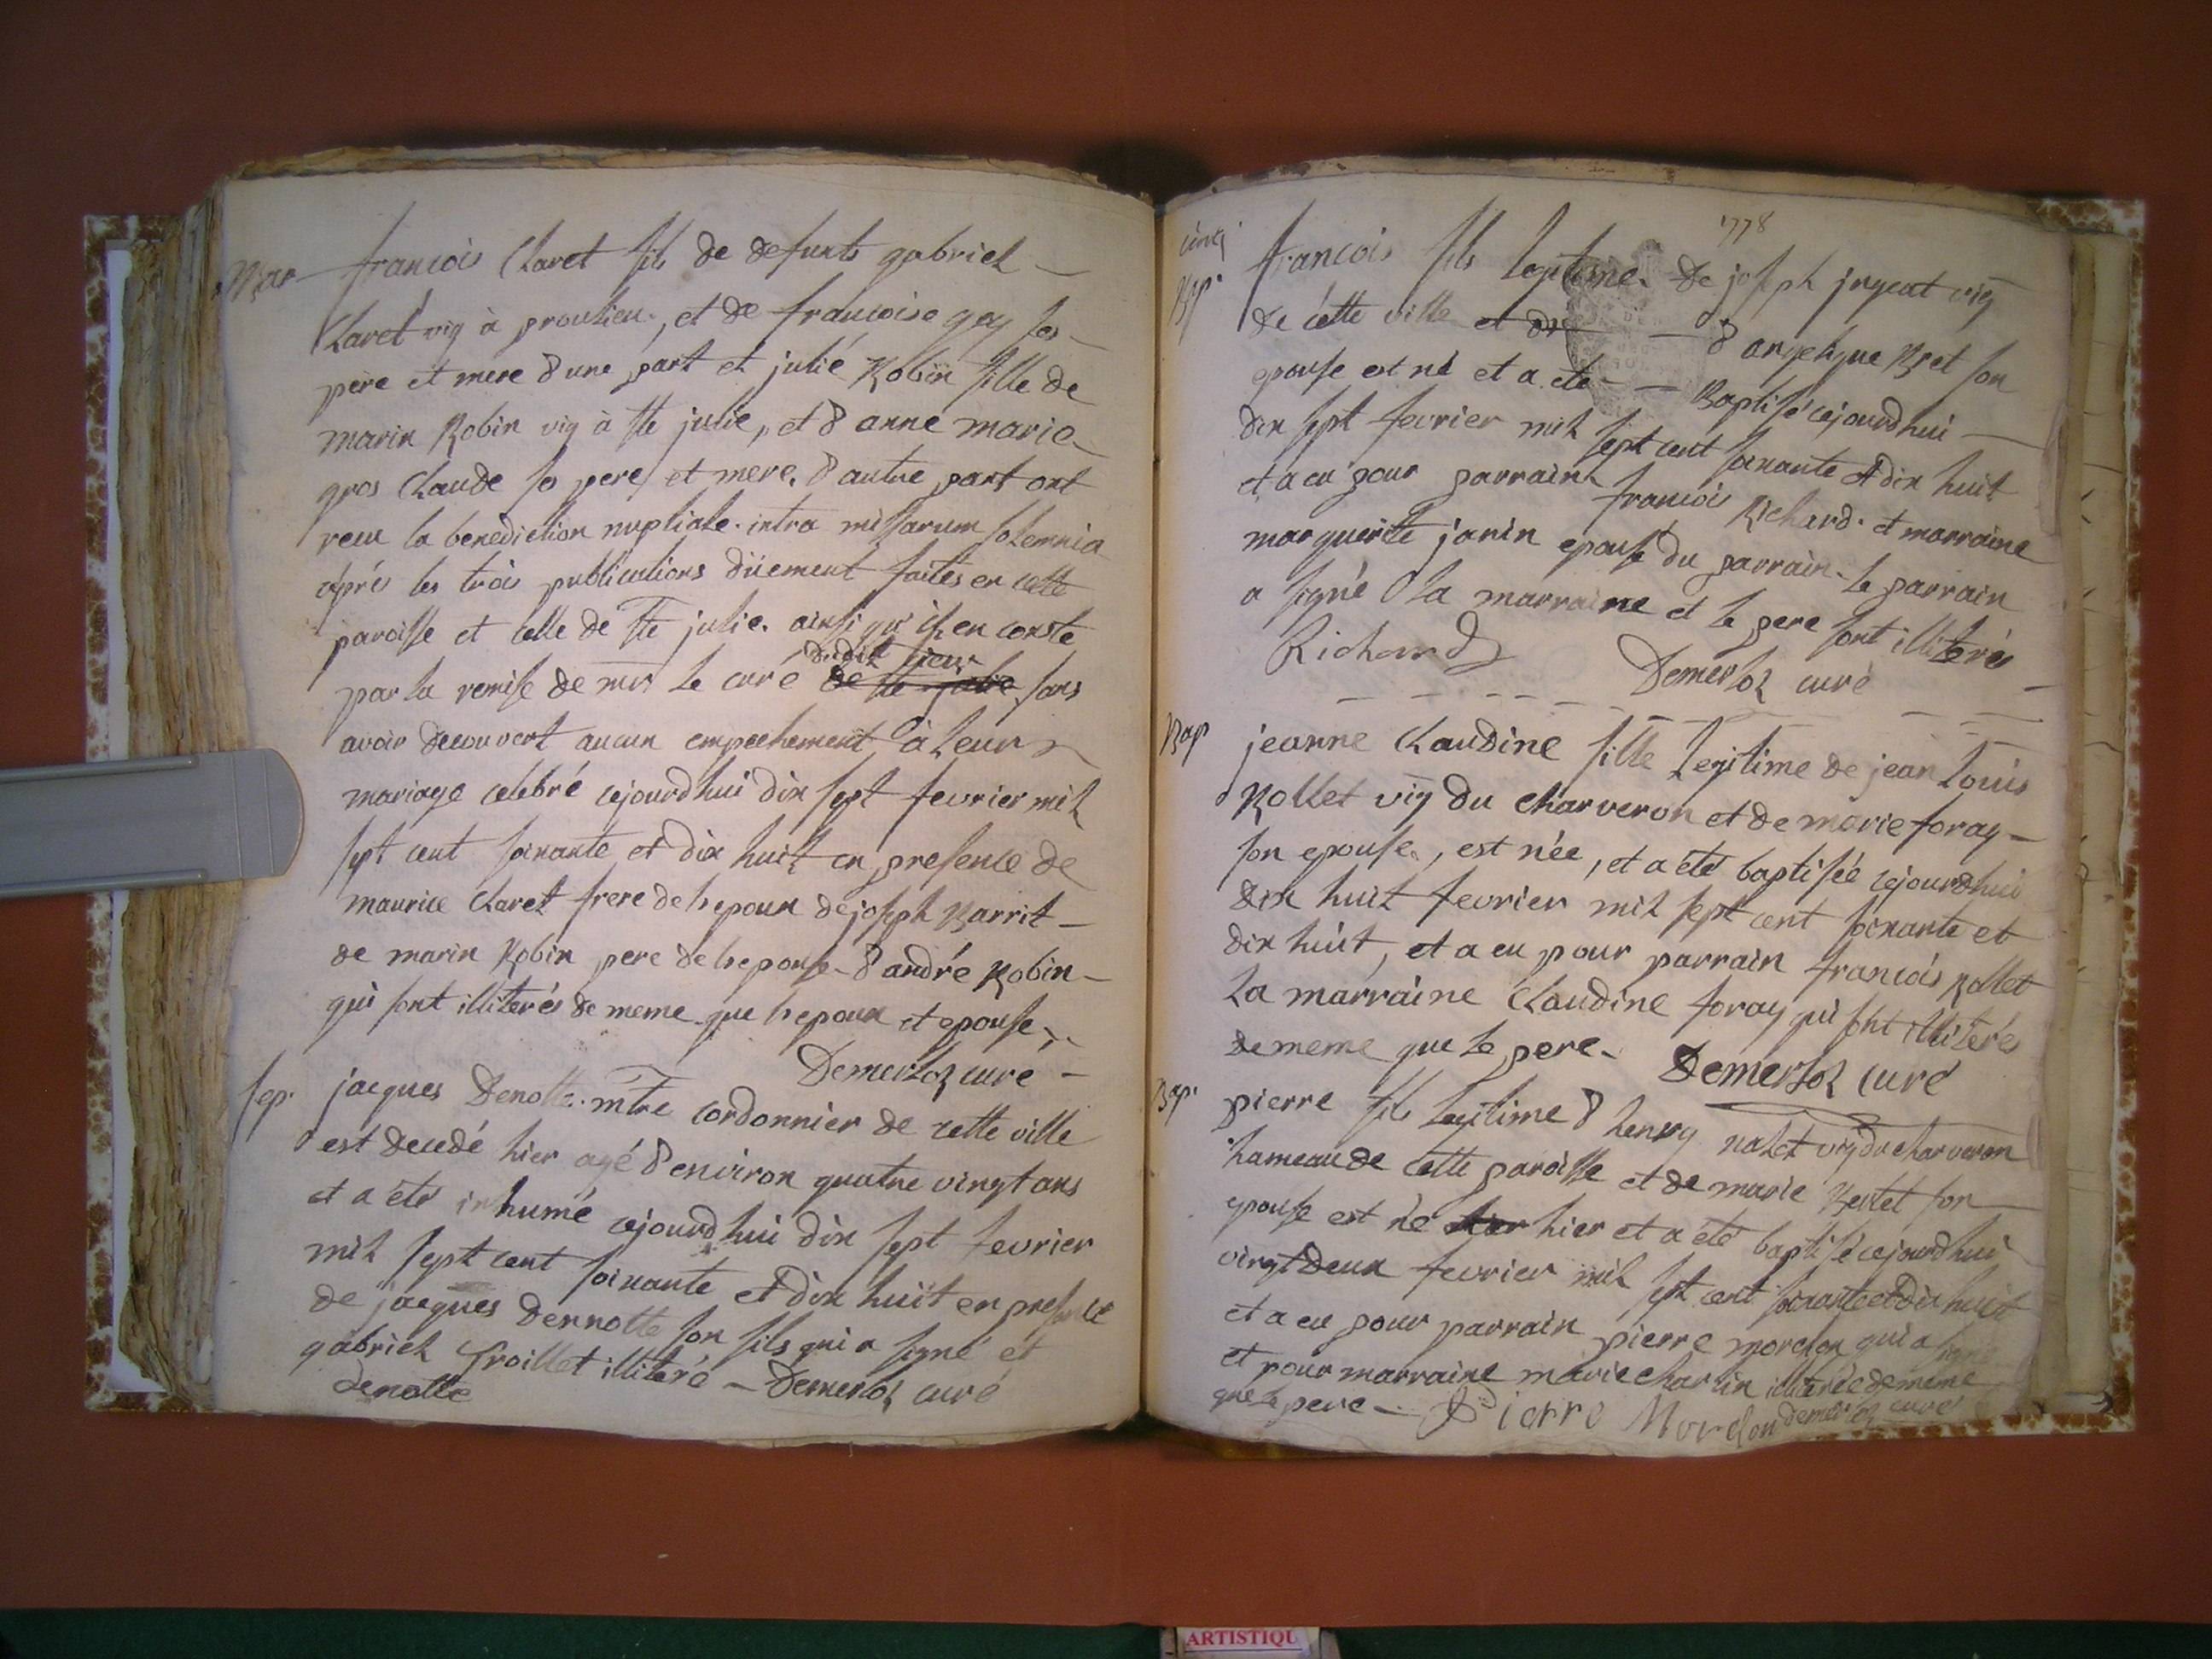 Mar francois Claret fils de defunts gabriel
Claret vig à proulieu, et de francoise gey ses
père et mere d une part et julie Robin fille de
marin Robin vig à ste julie, et d anne marie
gros claude ses pere et mere, d autre part ont
recu la benediction nuptiale intra missarum solemnia
après les trois publications düement faites en cette
paroisse et celle de ste julie. ainsi qu il en conste
dudit lieu
par la remise de mr le curé de ste julie sans
avoir decouvert aucun empechement à leur
mariage célébré cejourdhui dix sept fevrier mil
sept cent soixante et dix huit en presence de
maurice Claret frere de l epoux de joseph Barrit
de marin Robin pere de l epouse d andré Robin
qui sont illiterés de meme que l epoux et epouse,
Demerloz curé
sep. jacques Denotte mtre cordonnier de cette ville
est decedé hier agé d environ quatre vingt ans
et a été inhumé cejourdhui dix sept fevrier
mil sept cent soixante et dix huit en presence
de jacques dennotte son fils qui a signé et
gabriel froillet illiteré - Demerloz curé
denotte
1778
cinq
Bap. francois fils legitime de joseph jngeat vig
de cette ville et de d angelique Bret son
epouse est né et a été Baptisé cejourdhui
dix sept fevrier mil sept cent soixante et dix huit
et a eu pour parrain francois Richard. et marraine
marguerite janin epouse du parrain. le parrain
a signé la marraine et le pere sont illiterés
Richard Demerloz curé
Bap jeanne claudine fille legitime de jean louis
Rollet vig du charveron et de marie foray
son epouse, est née, et a été baptisée cejourdhui
dix huit fevrier mil sept cent soixante et
dix huit, et a eu pour parrain francois Rollet
la marraine claudine foray qui sont illiterés
de meme que le pere. Demerloz curé
Bap. pierre fils legitime d henry nalet vig du charveron
hameau de cette paroisse et de marie son
epouse est né hier hier et a été baptisé cejourdhui
vingt deux fevrier mil sept cent soixante et dix huit
et a eu pour parrain pierre morelon qui a signé
et pour marraine marie charlin illiterée de meme
que le pere - Pierre Morelon demerloz curé
ARTISTIQU